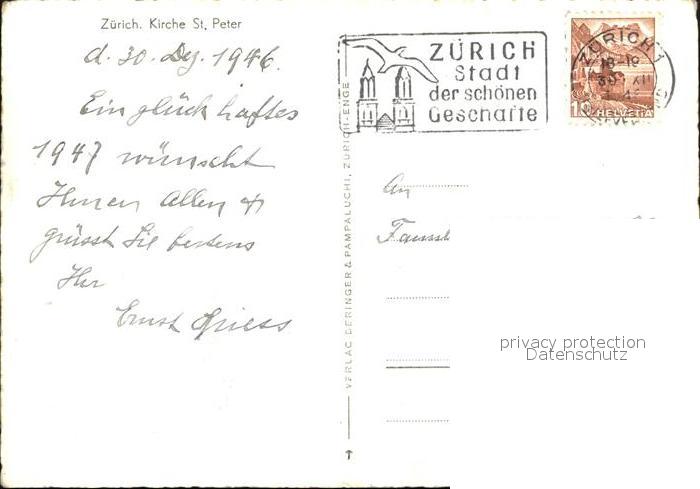 Zürich. Kirche St. Peter
d. 30. Dez. 1946.
Ein glückhaftes
1947 wünscht
Ihnen Allen &
grüsst Sie bestens
Ihr
Ernst Griess
VERLAG DERINGER & PAMPALUCHI, ZÜRICH-ENGE
ZÜRICH
Stadt
der schönen
Geschäfte
ZÜRICH 1
18-19
30. XII
10 HELVETIA
An
privacy protection
Datenschutz